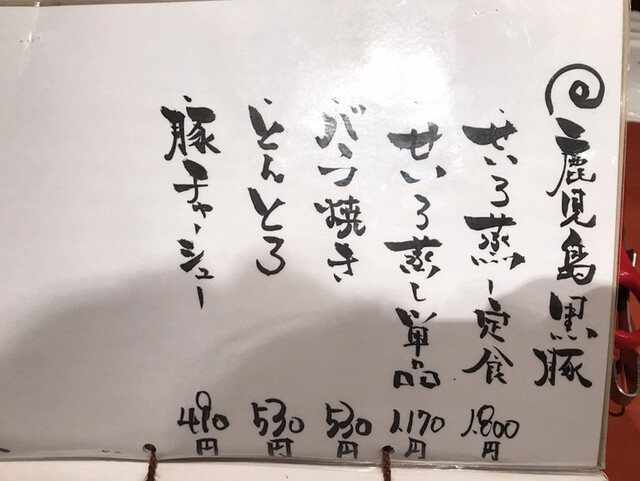 鹿児島黒豚
せいろ蒸し定食 1,800円
せいろ蒸し単品 1,170円
バラ焼き 530円
とんとろ 530円
豚チャーシュー 490円